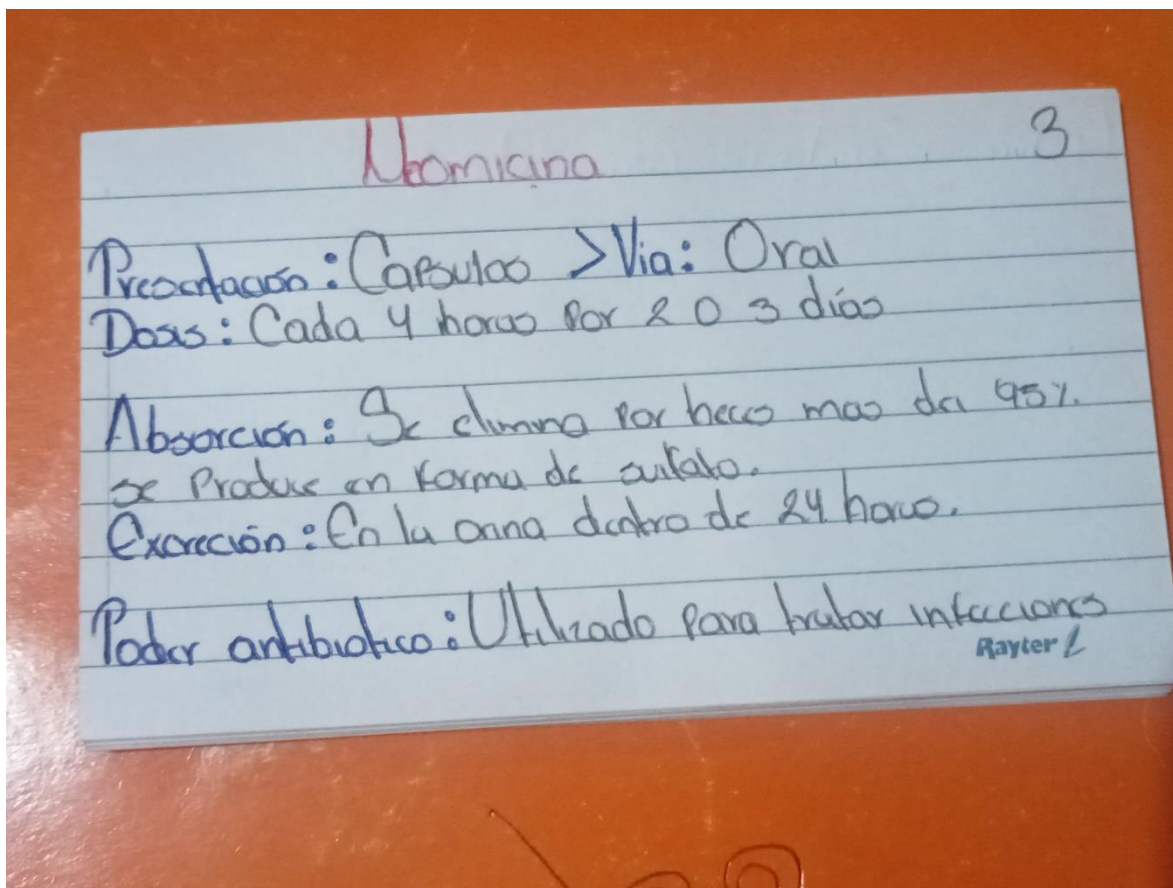 Neomicina
3
Presentación: Capsulas > Via: Oral
Dosis: Cada 4 horas por 2 o 3 días
Absorción: Se elimina por heces mas del 95%.
se Produce en forma de sulfato.
Excreción: En la orina dentro de 24 horas.
Poder antibiotico: Utilizado para tratar infecciones
Rayter